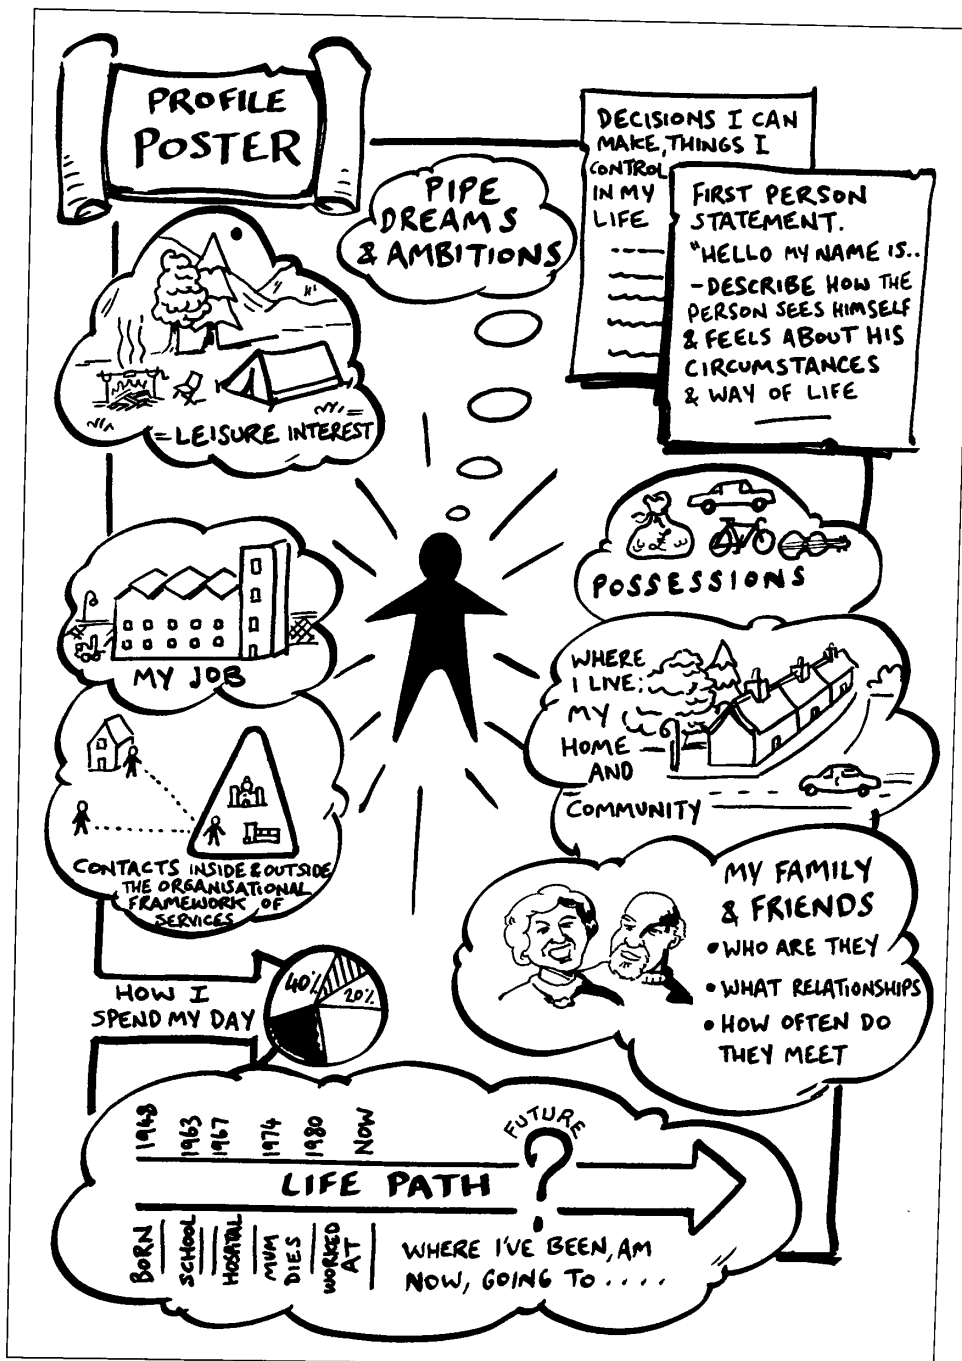 PROFILE
POSTER
PIPE
DREAMS
& AMBITIONS
DECISIONS I CAN
MAKE, THINGS I
CONTROL
IN MY
LIFE
FIRST PERSON
STATEMENT.
"HELLO MY NAME IS..
-DESCRIBE HOW THE
PERSON SEES HIMSELF
& FEELS ABOUT HIS
CIRCUMSTANCES
& WAY OF LIFE
= LEISURE INTEREST
£
POSSESSIONS
MY JOB
WHERE
I LIVE:
MY
HOME
AND
COMMUNITY
CONTACTS INSIDE & OUTSIDE
THE ORGANISATIONAL
FRAMEWORK OF
SERVICES
MY FAMILY
& FRIENDS
• WHO ARE THEY
• WHAT RELATIONSHIPS
• HOW OFTEN DO
THEY MEET
HOW I
SPEND MY DAY
40%
20%
1948
1963
1967
1974
1980
NOW
FUTURE
?
LIFE PATH
BORN
SCHOOL
HOSPITAL
MUM
DIES
WORKED
AT
WHERE I'VE BEEN, AM
NOW, GOING TO . . . .